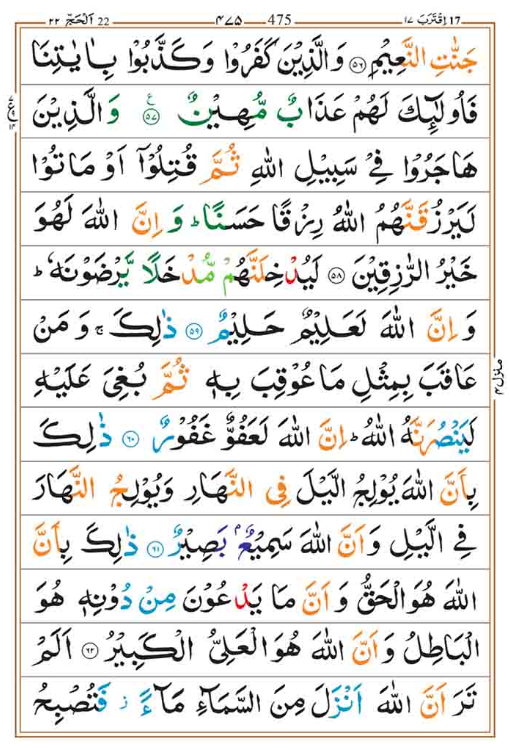 اِقْتَرَبَ ١٧ 17 475 ٤٧٥ 22 اَلْحَجّ ٢٢
جَنّٰتِ النَّعِيْمِ ٥٦ وَالَّذِيْنَ كَفَرُوْا وَكَذَّبُوْا بِاٰيٰتِنَا
فَاُولٰٓئِكَ لَهُمْ عَذَابٌ مُّهِيْنٌ ٥٧ ع وَالَّذِيْنَ
هَاجَرُوْا فِيْ سَبِيْلِ اللّٰهِ ثُمَّ قُتِلُوْٓا اَوْ مَاتُوْا
لَيَرْزُقَنَّهُمُ اللّٰهُ رِزْقًا حَسَنًا ؕ وَاِنَّ اللّٰهَ لَهُوَ
خَيْرُ الرّٰزِقِيْنَ ٥٨ لَيُدْخِلَنَّهُمْ مُّدْخَلًا يَّرْضَوْنَهٗ ؕ
وَاِنَّ اللّٰهَ لَعَلِيْمٌ حَلِيْمٌ ٥٩ ذٰلِكَ ۚ وَمَنْ
عَاقَبَ بِمِثْلِ مَا عُوْقِبَ بِهٖ ثُمَّ بُغِيَ عَلَيْهِ
لَيَنْصُرَنَّهُ اللّٰهُ ؕ اِنَّ اللّٰهَ لَعَفُوٌّ غَفُوْرٌ ٦٠ ذٰلِكَ
بِاَنَّ اللّٰهَ يُوْلِجُ الَّيْلَ فِي النَّهَارِ وَيُوْلِجُ النَّهَارَ
فِي الَّيْلِ وَاَنَّ اللّٰهَ سَمِيْعٌۢ بَصِيْرٌ ٦١ ذٰلِكَ بِاَنَّ
اللّٰهَ هُوَ الْحَقُّ وَاَنَّ مَا يَدْعُوْنَ مِنْ دُوْنِهٖ هُوَ
الْبَاطِلُ وَاَنَّ اللّٰهَ هُوَ الْعَلِيُّ الْكَبِيْرُ ٦٢ اَلَمْ
تَرَ اَنَّ اللّٰهَ اَنْزَلَ مِنَ السَّمَآءِ مَآءً ز فَتُصْبِحُ
منزل ٤